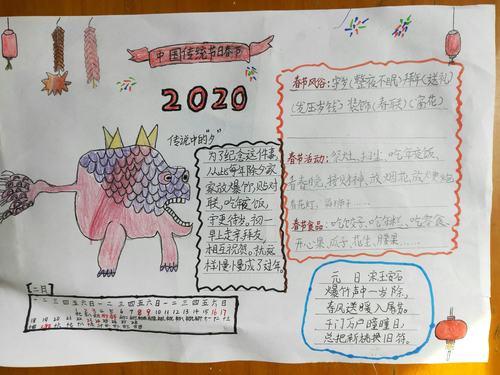 中国传统节日春节
2020
传说中的"夕"
为了纪念这件事,
从此每年除夕家
家放爆竹,贴对
联,吃年夜饭,
守更待岁。初一
早上走亲拜友,
相互祝贺。就这
样慢慢成了过年。
春节风俗:守岁(整夜不眠)拜年(送礼)
(发压岁钱)装饰(春联)(窗花)
春节活动:祭灶,扫尘,吃年夜饭,
春节食品:吃饺子,吃年糕,吃零食,
开心果,瓜子,花生,腰果……
元日 宋王安石
爆竹声中一岁除,
春风送暖入屠苏。
千门万户曈曈日,
总把新桃换旧符。
二月
一二三四五六日一二三四五六日一二三四五六日